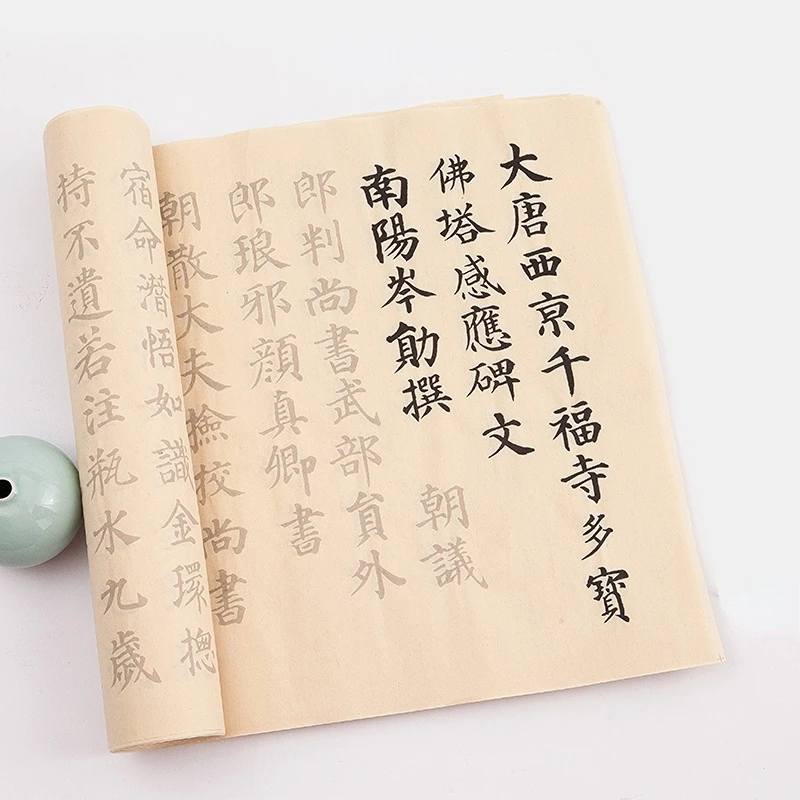 大唐西京千福寺多寶
佛塔感應碑文
南陽岑勛撰 朝議
郎判尚書武部員外
郎琅邪顏真卿書
朝散大夫撿挍尚書
宿命潛悟如識金環揔
持不遺若注瓶水九歲